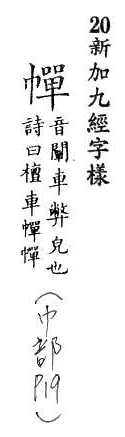 20新加九經字樣
幝 音闡車弊皃也
詩曰檀車幝幝
(巾部P19)